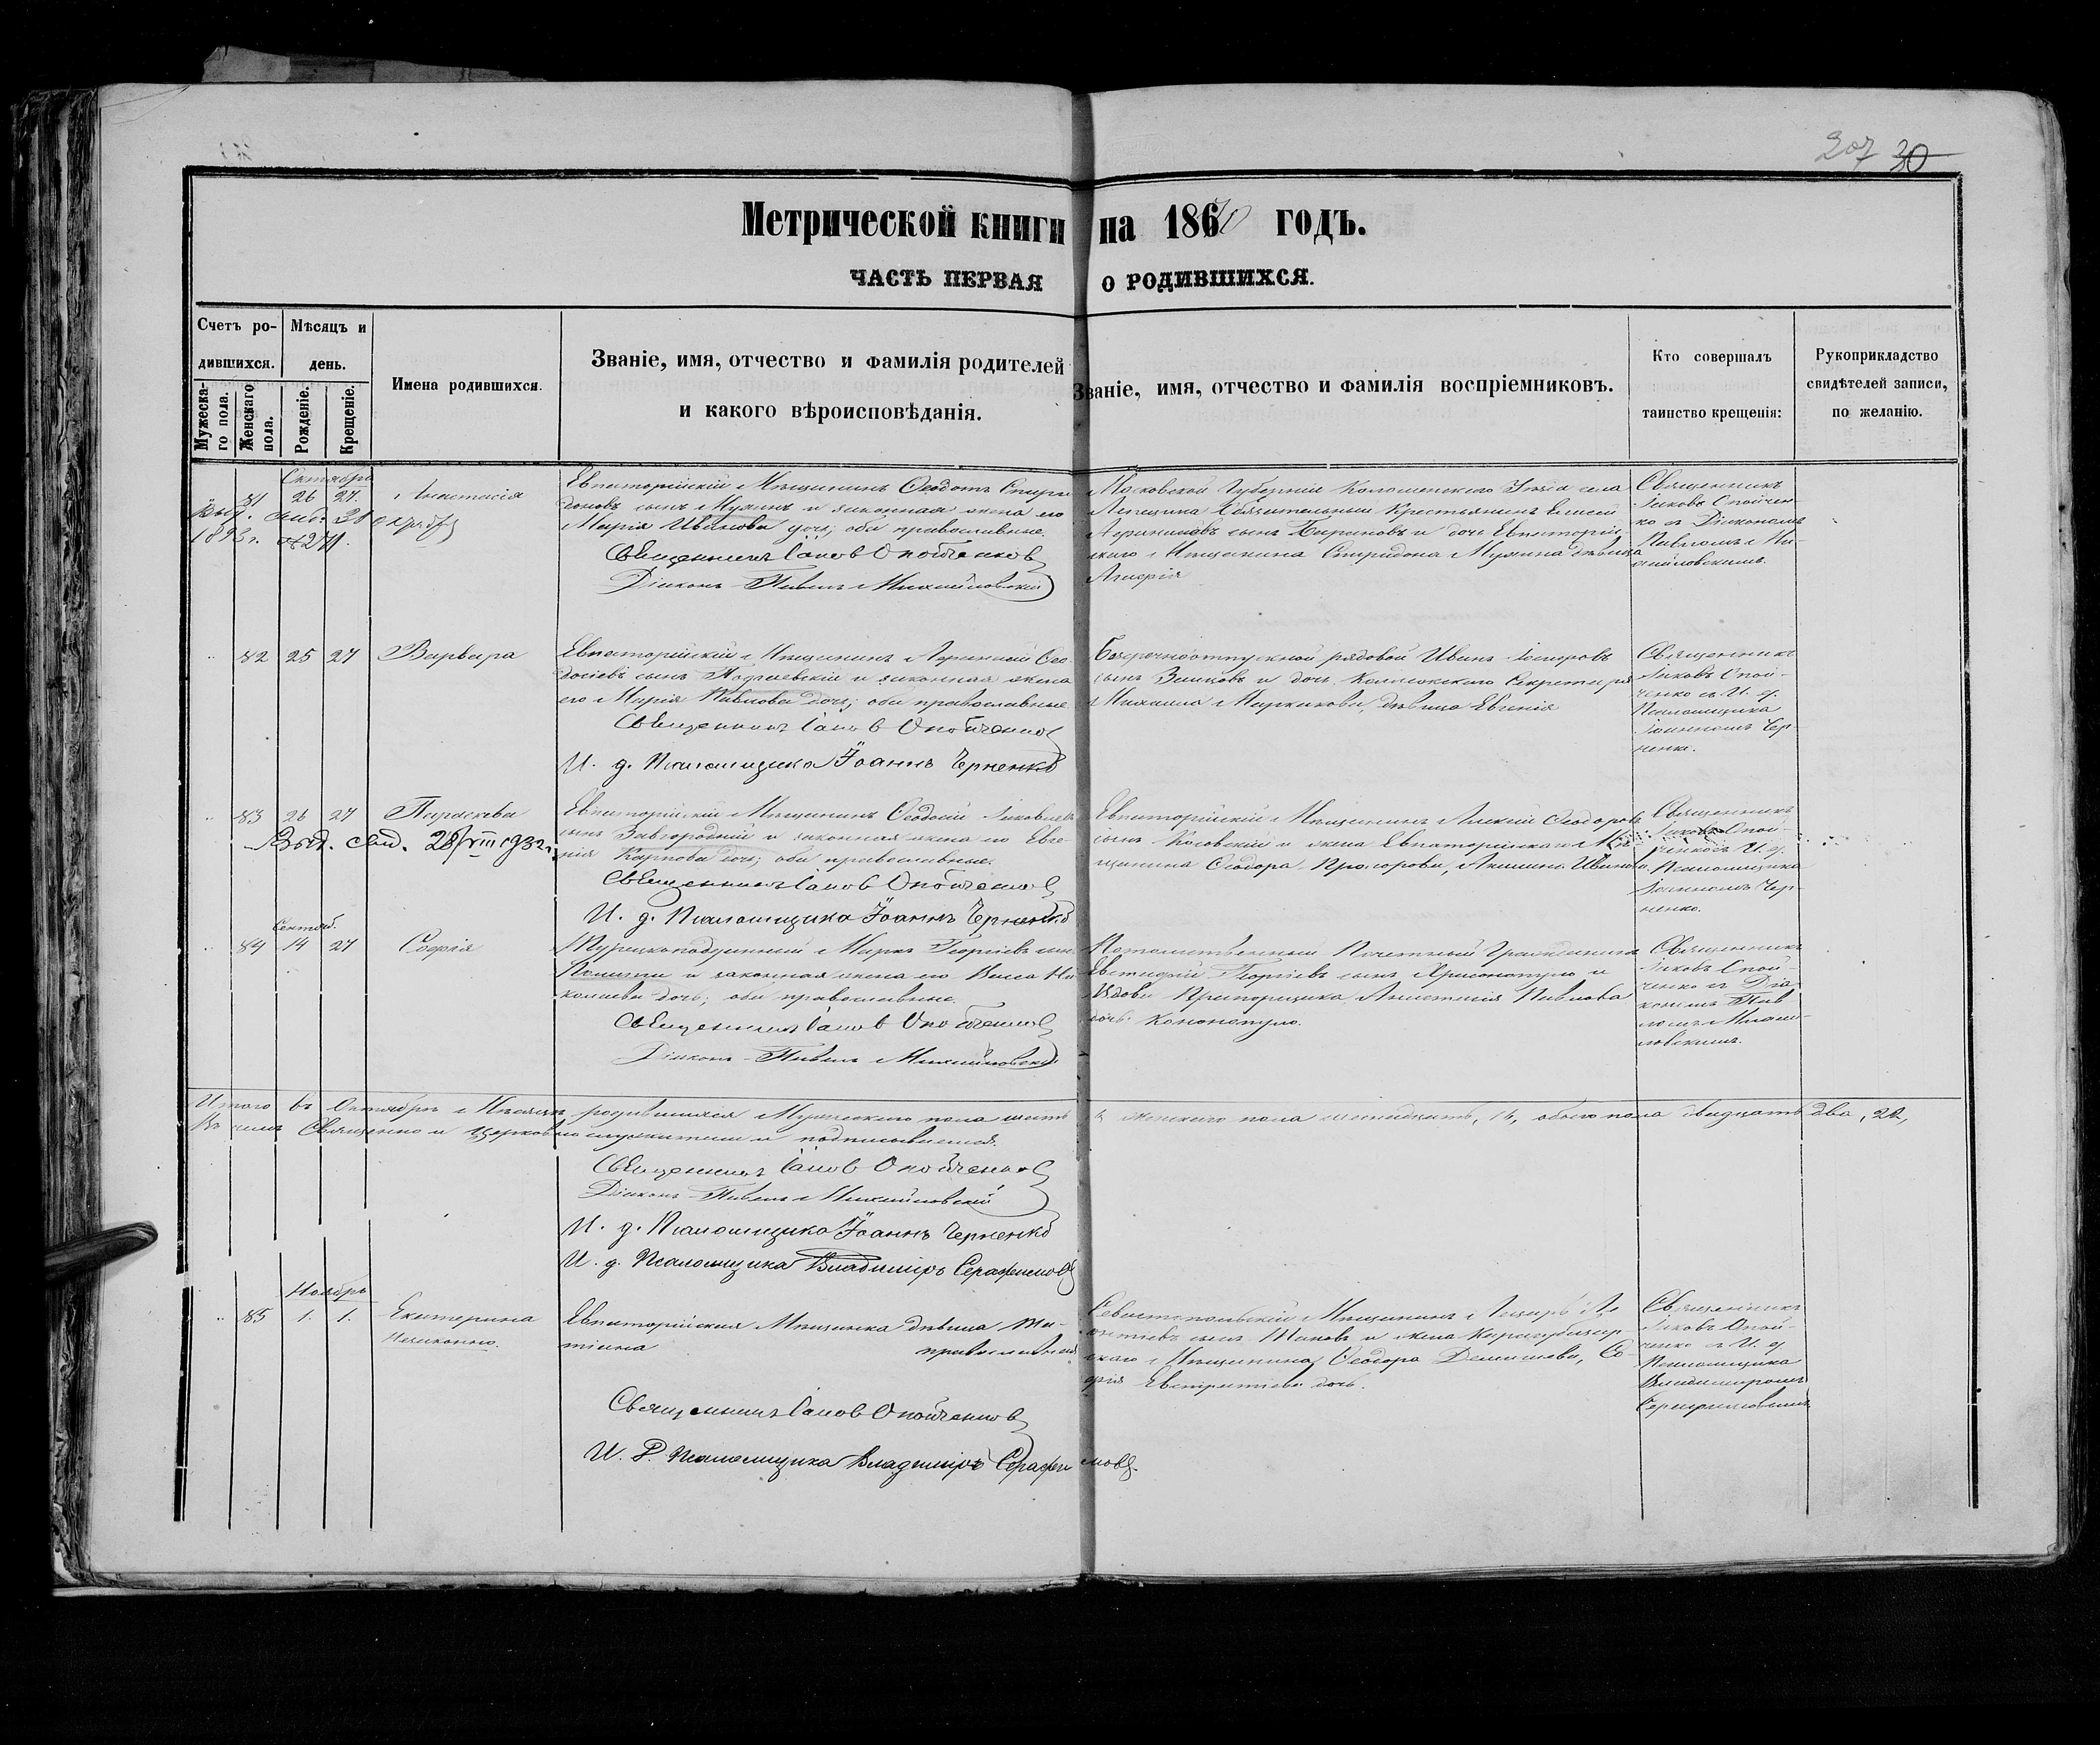 207 30
Метрической книги на 1870 годъ.
ЧАСТЬ ПЕРВАЯ О РОДИВШИХСЯ.
Счетъ ро-
дившихся.
Мужеска-
го пола.
Женскаго
пола.
Мѣсяцъ и
день.
Рожденіе.
Крещеніе.
Имена родившихся.
Званіе, имя, отчество и фамилія родителей
и какого вѣроисповѣданія.
Званіе, имя, отчество и фамилія воспріемниковъ.
Кто совершалъ
таинство крещенія:
Рукоприкладство
свидѣтелей записи,
по желанію.
Октябрь
81 26 27. Анастасія
Выд. свид. 28 октября
1893 г.
Евпаторійскій Мѣщанинъ Ѳеодотъ Спири-
доновъ сынъ Мухинъ и законная жена его
Марія Иванова дочь; оба православные.
Священникъ Іаковъ Опойченковъ
Діаконъ Павелъ Михайловскій
Московской Губерніи Коломенскаго Уѣзда села
крестьянинъ
сынъ и дочь Евпаторій-
скаго Мѣщанина Спиридона Мухина дѣвица
Священникъ
Іаковъ Опойчен-
ко съ Діакономъ
Павломъ Ми-
хайловскимъ.
82 25 27 Варвара
Евпаторійскій Мѣщанинъ Ѳео-
досіевъ сынъ и законная жена
его Марія Павлова дочь; оба православные
Священникъ Іаковъ Опойченковъ
И. д. Псаломщика Іоаннъ Черненко
Безсрочноотпускной рядовой Иванъ
сынъ и дочь Коллежскаго Секретаря
Михаила дѣвица Евгенія
Священникъ
Іаковъ Опой-
ченко съ И. д.
Псаломщика
Іоанномъ Чер-
ненко.
83 26 27 Параскева
Выд. свид. 28/VIII 1932 г.
Евпаторійскій Мѣщанинъ Ѳеодосій Яковлевъ
сынъ Завгородній и законная жена его Евге-
нія Карпова дочь; оба православные.
Священникъ Іаковъ Опойченковъ
И. д. Псаломщика Іоаннъ Черненко
Евпаторійскій Мѣщанинъ Алексій Ѳеодоровъ
сынъ Косовскій и жена Евпаторійскаго Мѣ-
щанина Ѳеодора Прохорова, Иванова.
Священникъ
Іаковъ Опой-
ченко съ И. д.
Псаломщика
Іоанномъ Чер-
ненко.
Сентяб.
84 14 27 Софія
Турецкоподданный Марко Георгіевъ сынъ
и законная жена его Васса Ни-
колаева дочь; оба православные.
Священникъ Іаковъ Опойченковъ
Діаконъ Павелъ Михайловскій
Потомственный Почетный Гражданинъ
Георгіевъ сынъ и
вдова Прапорщика Анастасія Павлова
дочь
Священникъ
Іаковъ Опой-
ченко съ Діа-
кономъ Пав-
ломъ Михай-
ловскимъ.
Итого въ Октябрѣ Мѣсяцѣ родившихся Мужескаго пола шесть 6, женскаго пола шестнадцать, 16, обоего пола двадцать два, 22,
Въ чемъ Священно и церковнослужители и подписываемся.
Священникъ Іаковъ Опойченковъ
Діаконъ Павелъ Михайловскій
И. д. Псаломщика Іоаннъ Черненко
И. д. Псаломщика Владиміръ Серафимовъ
Ноябрь
85 1. 1. Екатерина
незаконно.
Евпаторійская Мѣщанка дѣвица Та-
тіана православная
Священникъ Іаковъ Опойченковъ
И. д. Псаломщика Владиміръ Серафимовъ.
Севастопольскій Мѣщанинъ Лазарь Ле-
онтіевъ сынъ и жена Карасубазар-
скаго Мѣщанина Ѳеодора Со-
фія Евстратіева дочь.
Священникъ
Іаковъ Опой-
ченко съ И. д.
Псаломщика
Владиміромъ
Серафимовымъ